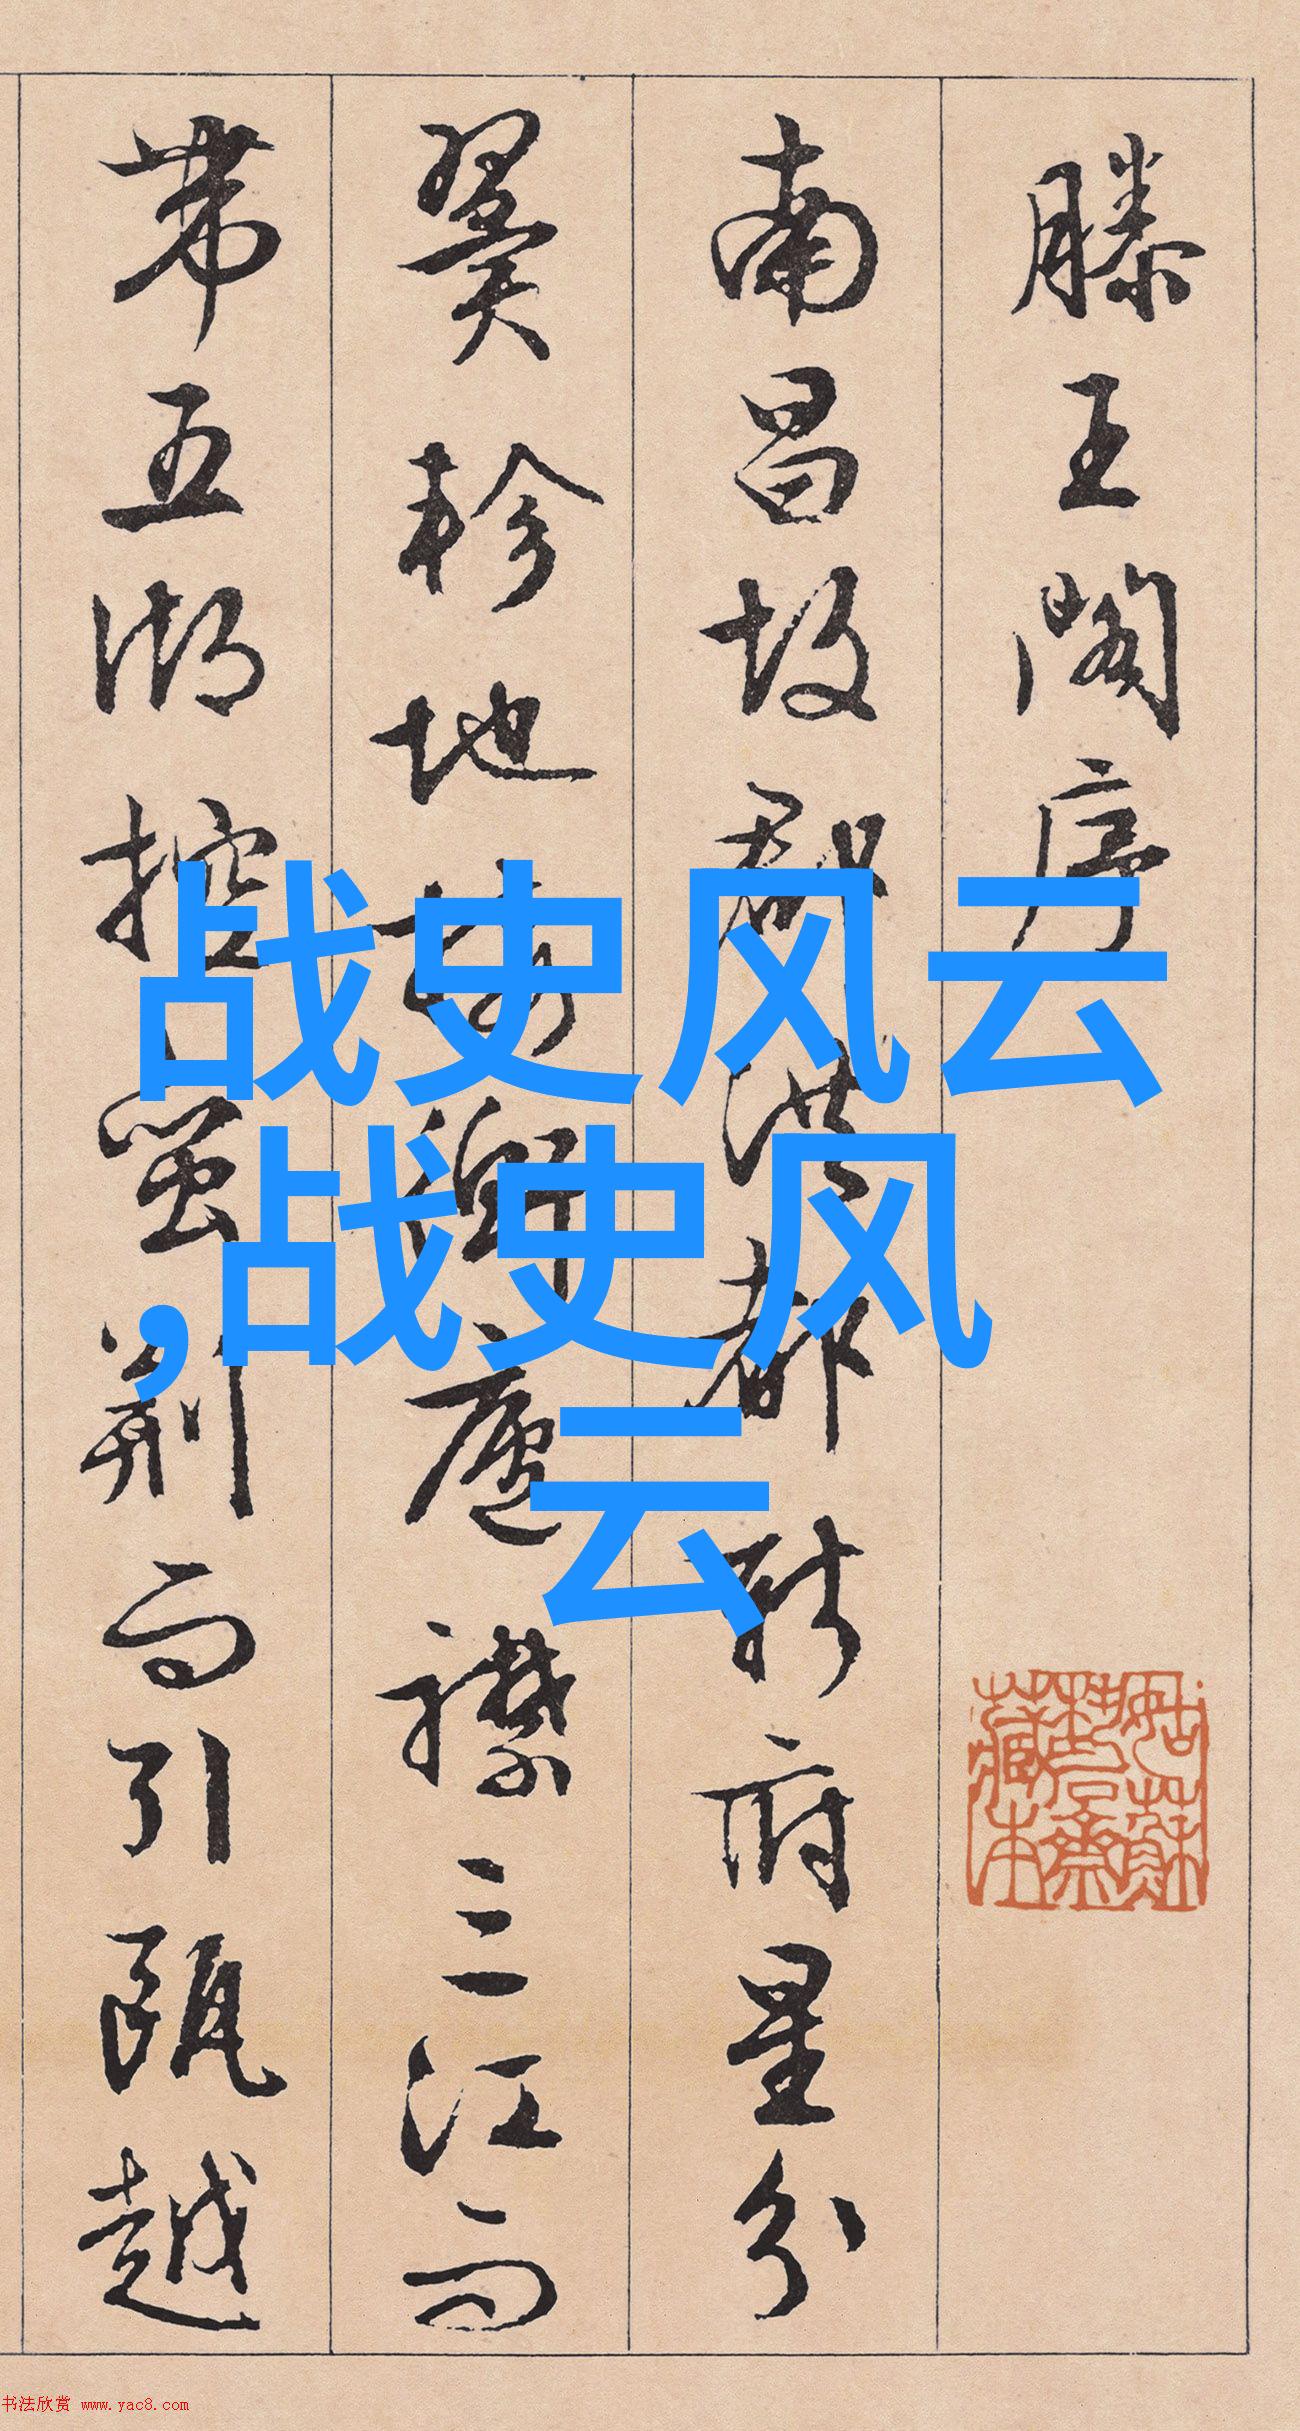 滕王阁序
南昌故郡洪都新府星分
翼轸地接衡庐襟三江而
带五湖控蛮荆而引瓯越
战史风云
,战史风
云
姑苏
斋
藏本
书法欣赏 www.yac8.com